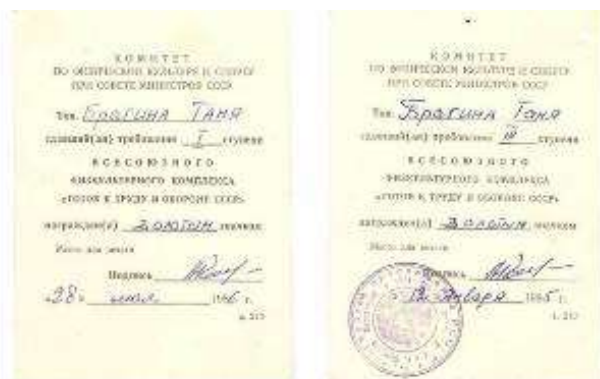 КОМИТЕТ
ПО ФИЗИЧЕСКОЙ КУЛЬТУРЕ И СПОРТУ
ПРИ СОВЕТЕ МИНИСТРОВ СССР
Тов. Брагина Таня
сдавший(ая) требования I ступени
ВСЕСОЮЗНОГО
ФИЗКУЛЬТУРНОГО КОМПЛЕКСА
«ГОТОВ К ТРУДУ И ОБОРОНЕ СССР»
награжден(а) золотым значком
Место для печати
Подпись
«28»
КОМИТЕТ
ПО ФИЗИЧЕСКОЙ КУЛЬТУРЕ И СПОРТУ
ПРИ СОВЕТЕ МИНИСТРОВ СССР
Тов. Брагина Таня
сдавший(ая) требования III ступени
ВСЕСОЮЗНОГО
ФИЗКУЛЬТУРНОГО КОМПЛЕКСА
«ГОТОВ К ТРУДУ И ОБОРОНЕ СССР»
награжден(а) золотым значком
Место для печати
Подпись
января